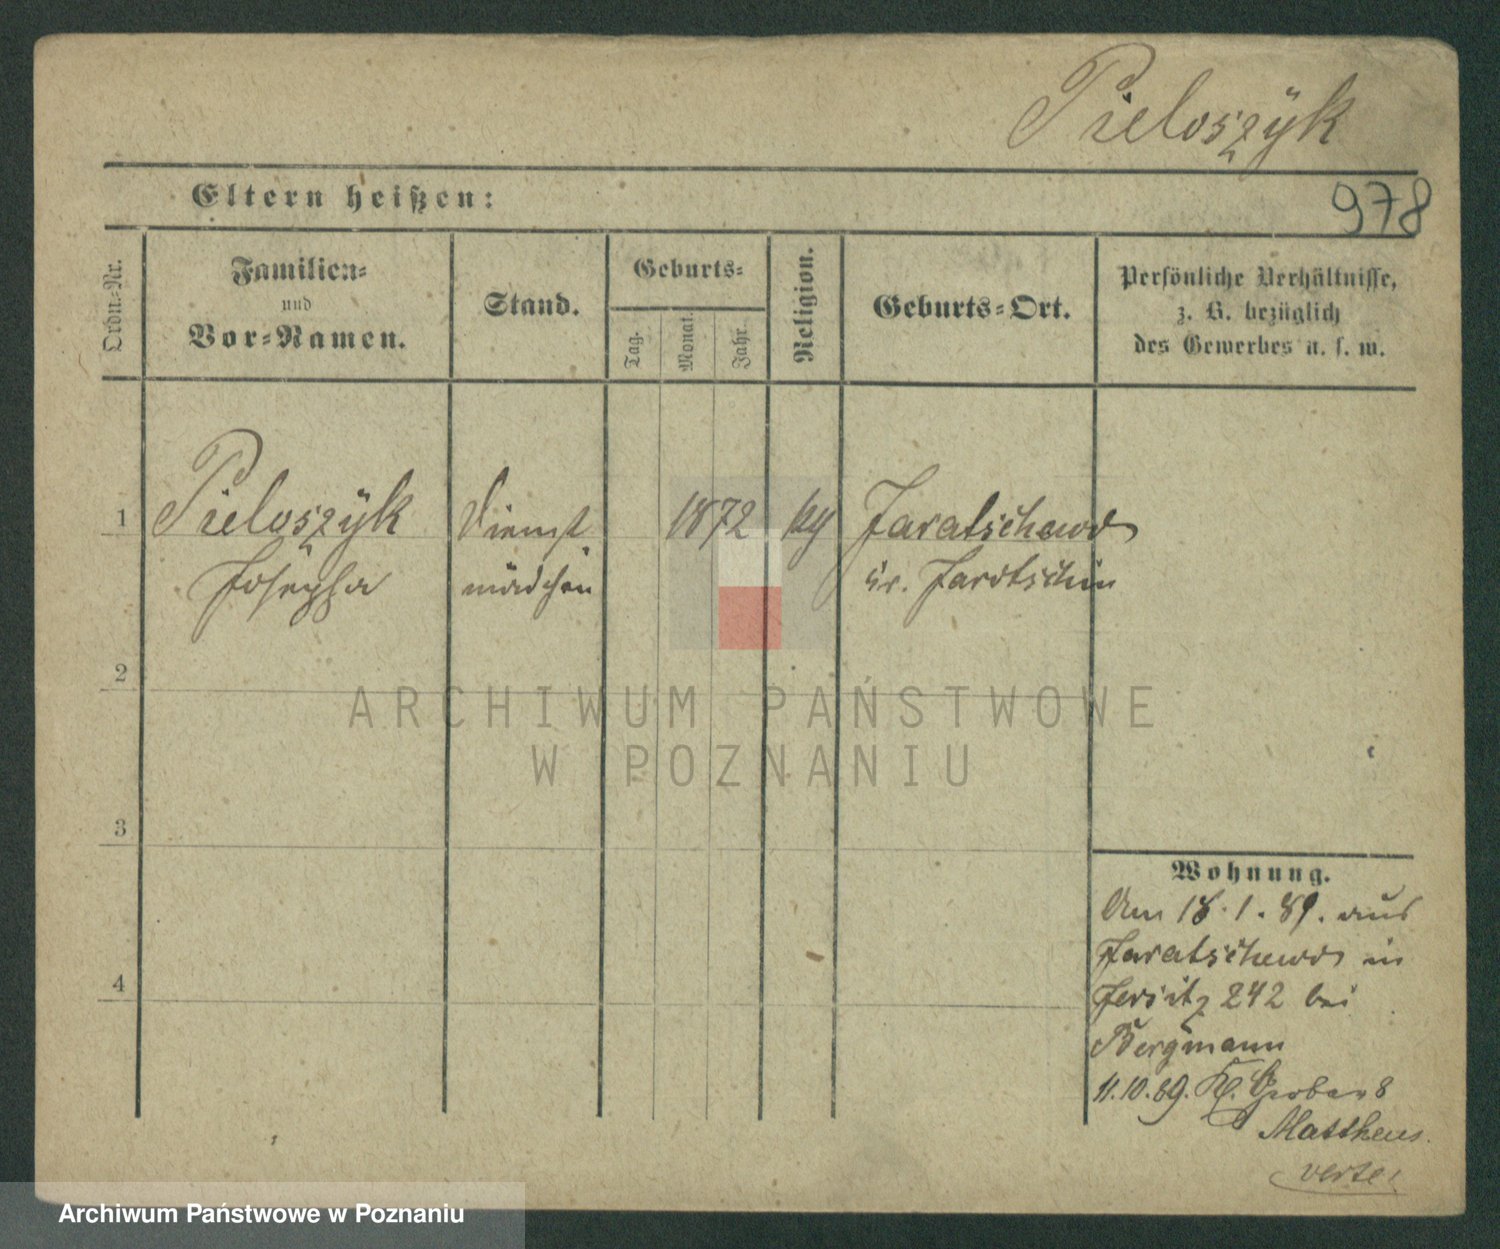 Pieloszÿk
Eltern heißen:
978
Ordn.-Nr.
Familien-
und
Vor-Namen.
Stand.
Geburts-
Tag.
Monat.
Jahr.
Religion.
Geburts-Ort.
Persönliche Verhältnisse,
z. B. bezüglich
des Gewerbes u. s. w.
1
Pieloszÿk
Josepha
Dienst
mädchen
1872
Jaratschewo
Kr. Jarotschin
2
3
4
Wohnung.
Am 18.1.89. aus
Jaratschewo in
Jersitz 242 bei
Bergmann
11.10.89. Kl. Gerber 8
Mattheus
verte!
ARCHIWUM PAŃSTWOWE
W POZNANIU
Archiwum Państwowe w Poznaniu